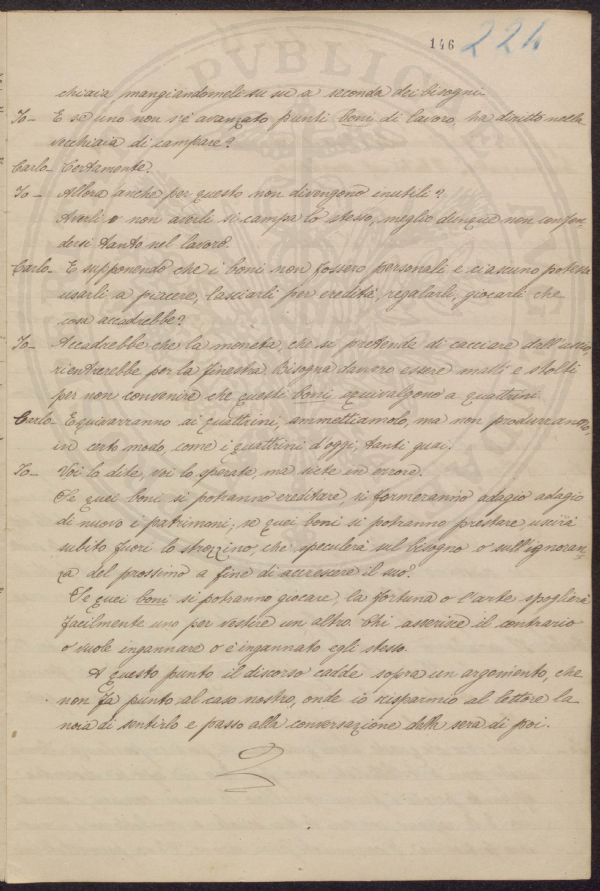 146 224
chiaia mangiandomele su su a seconda dei bisogni.
Io- E se uno non s'è avanzato punti boni di lavoro, ha diritto nella
vecchiaia di campare?
Carlo- Certamente.
Io- Allora anche per questo non divengono inutili?
Averli o non averli si campa lo stesso, meglio dunque non confon-
dersi tanto nel lavoro.
Carlo- E supponendo che i boni non fossero personali e ciascuno potesse
usarli a piacere, lasciarli per eredità, regalarli, giocarli che
cosa accadrebbe?
Io- Accadrebbe che la moneta, che si pretende di cacciare dall'uscio,
rientrerebbe per la finestra. Bisogna davvero essere matti e stolti
per non convenire che questi boni equivalgono a quattrini.
Carlo- Equivarranno ai quattrini, ammettiamolo, ma non produrranno,
in certo modo, come i quattrini d'oggi, tanti guai.
Io- Voi lo dite, voi lo sperate, ma siete in errore.
Se quei boni si potranno ereditare, si formeranno adagio adagio
di nuovo i patrimoni; se quei boni si potranno prestare, uscirà
subito fuori lo strozzino, che speculerà sul bisogno o sull'ignoran-
za del prossimo a fine di accrescere il suo.
Se quei boni si potranno giocare, la fortuna o l'arte spoglierà
facilmente uno per vestire un altro. Chi asserisce il contrario
o vuole ingannare o è ingannato egli stesso.
A questo punto il discorso cadde sopra un argomento, che
non fa punto al caso nostro, onde io risparmio al lettore la
noia di sentirlo e passo alla conversazione della sera di poi.